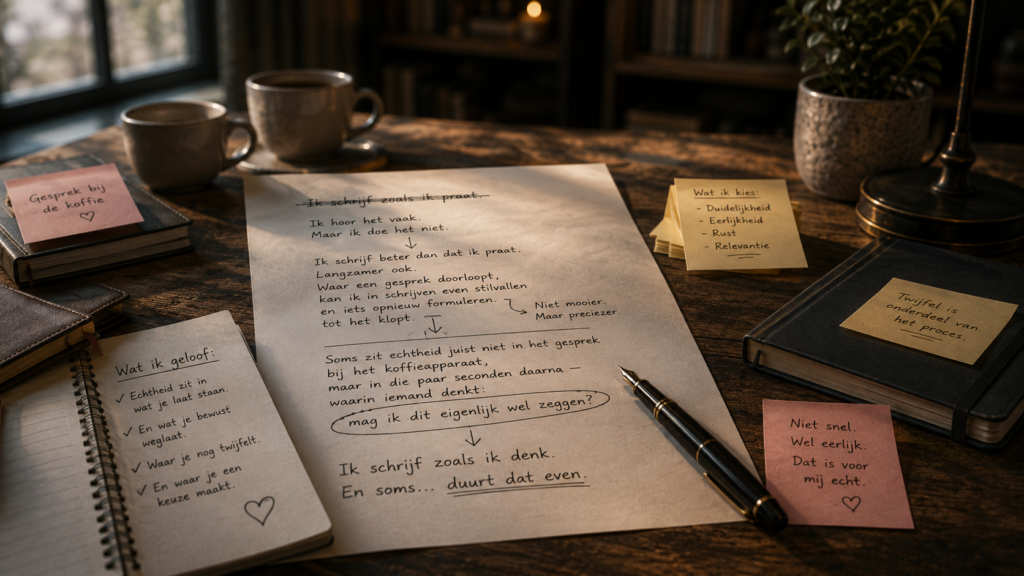 Gesprek bij
de koffie
Ik schrijf zoals ik praat.
Ik hoor het vaak.
Maar ik doe het niet.
Ik schrijf beter dan dat ik praat.
Langzamer ook.
Waar een gesprek doorloopt,
kan ik in schrijven even stilvallen
en iets opnieuw formuleren.
tot het klopt.
Niet mooier.
Maar preciezer.
Soms zit echtheid juist niet in het gesprek
bij het koffieapparaat,
maar in die paar seconden daarna –
waarin iemand denkt:
mag ik dit eigenlijk wel zeggen?
Ik schrijf zoals ik denk.
En soms... duurt dat even.
Wat ik geloof:
✓ Echtheid zit in
wat je laat staan
✓ En wat je bewust
weglaat.
✓ Waar je nog twijfelt.
✓ En waar je een
keuze maakt.
Wat ik kies:
- Duidelijkheid
- Eerlijkheid
- Rust
- Relevantie
Twijfel is
onderdeel van
het proces.
Niet snel.
Wel eerlijk.
Dat is voor
mij echt.